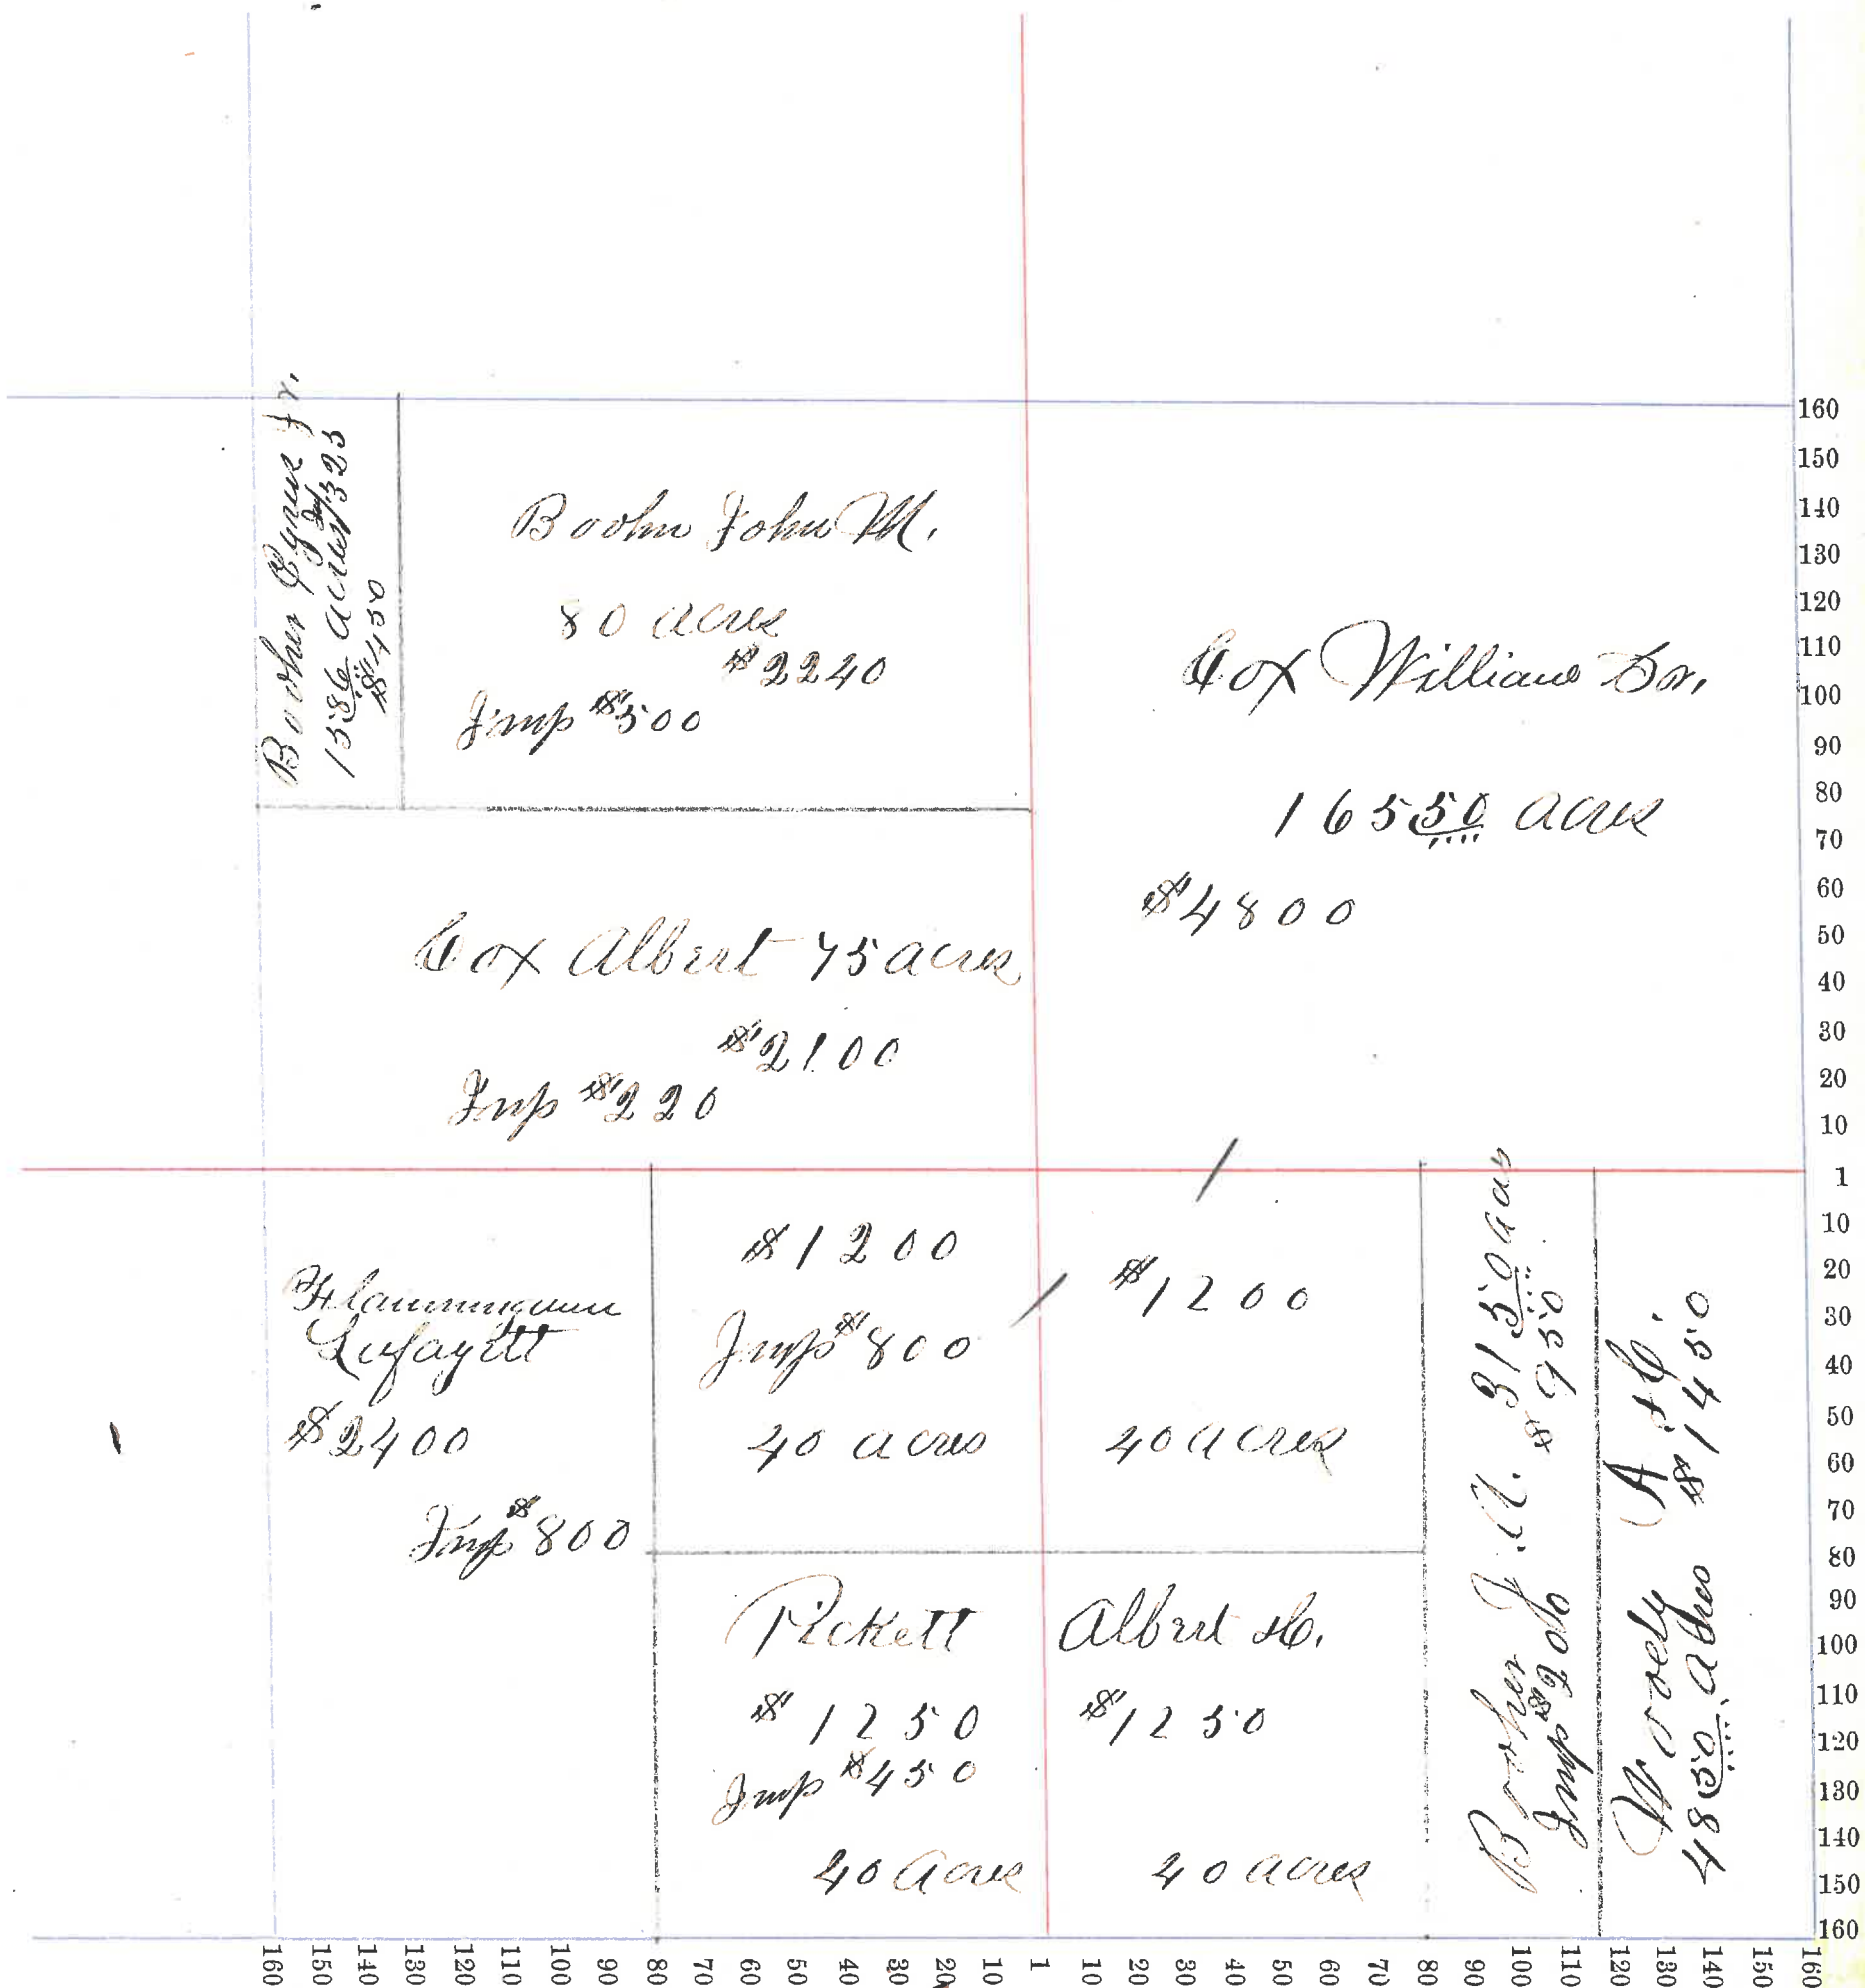 Booher Cyrus Jr.
15 86/100 acres $325
$450
Booher John M.
80 acres
$2240
Imp $500
Cox William Sr.
165 50/100 acres
$4800
Cox Albert 75 acres
$2100
Imp $220
Flanningam
Lafayett
$2400
Imp $800
$1200
Imp $800
40 acres
$1200
40 acres
Pickett Albert H.
$1250
Imp $450
40 Acres
$1250
40 acres
Booher J. A. 31 50/100 acrs
Imp $200 $950
Woody A H.
48 50/100 acres $1450
160
150
140
130
120
110
100
90
80
70
60
50
40
30
20
10
1
10
20
30
40
50
60
70
80
90
100
110
120
130
140
150
160
160 150 140 130 120 110 100 90 80 70 60 50 40 30 20 10 1 10 20 30 40 50 60 70 80 90 100 110 120 130 140 150 160